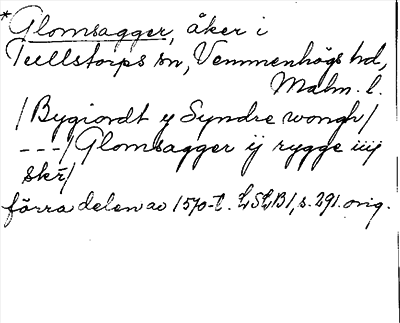 *Glomsagger, åker i
Tullstorps sn, Vemmenhögs hd,
Malm. l.
/Bygiordt y Syndre wongh/
---/Glomsagger ij rygge iiij
skr̄/
förra delen av 1570-t. LSLB1, s. 291. orig.